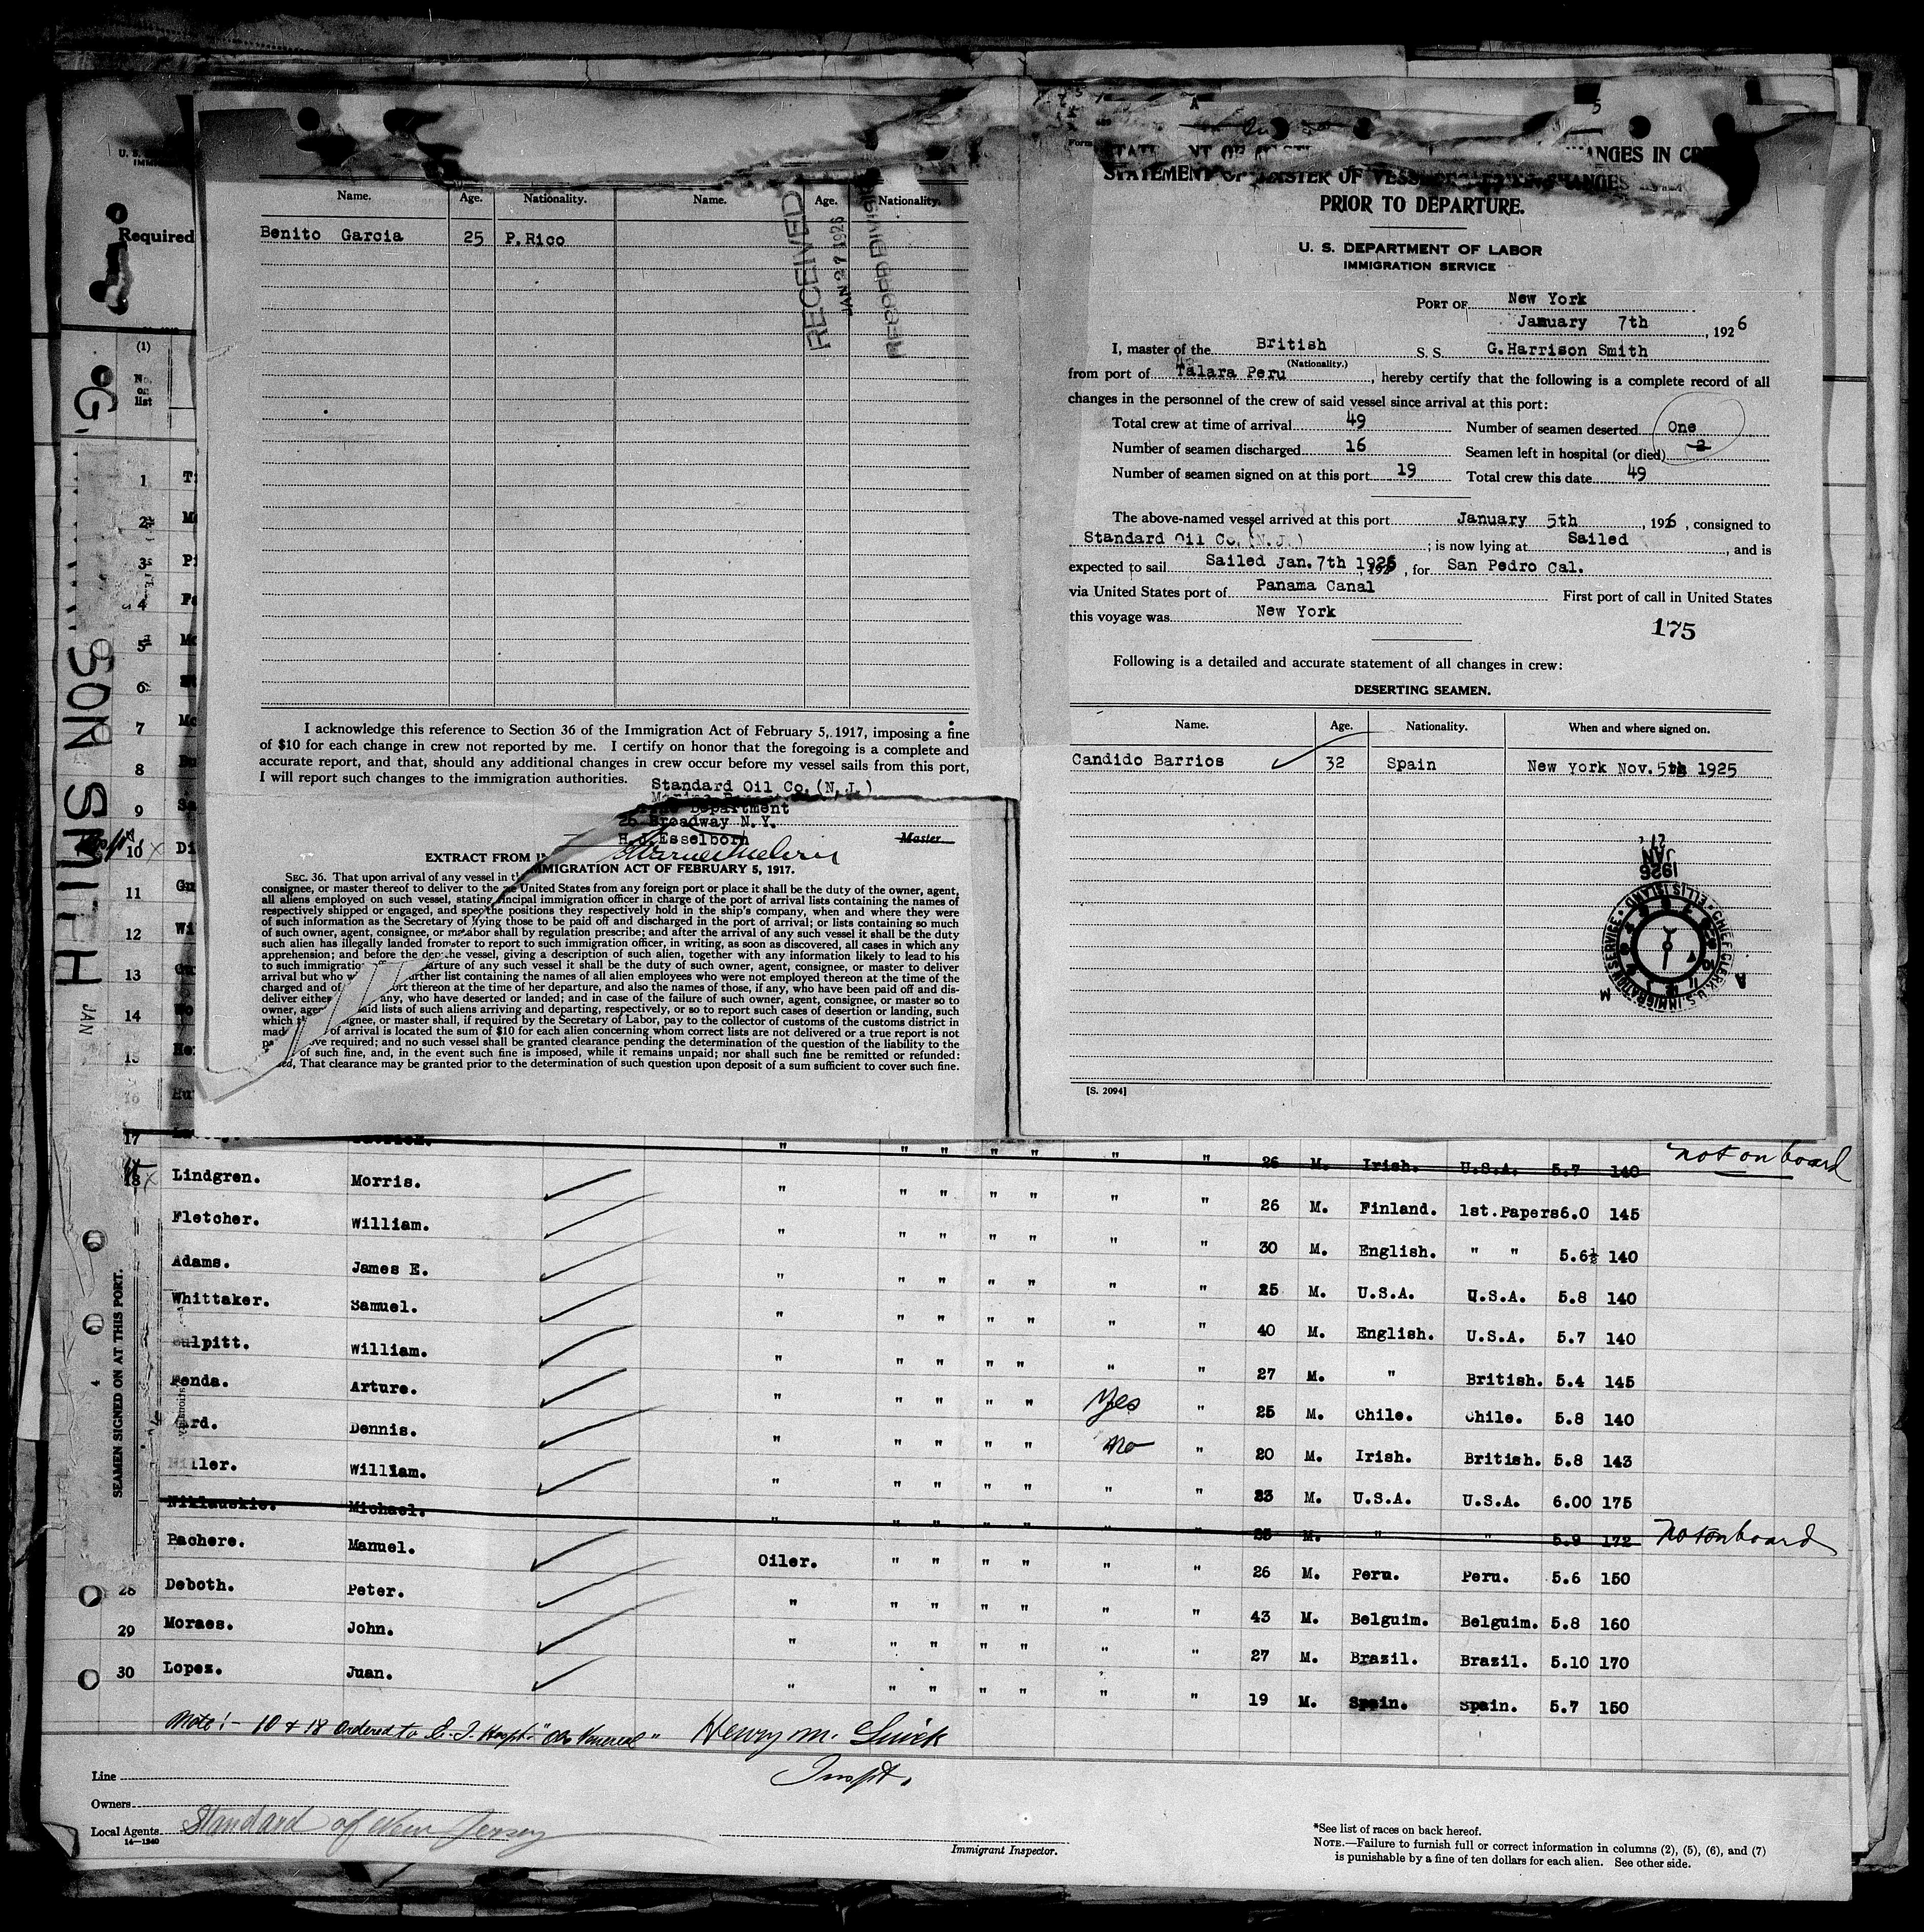 Name. Age. Nationality. Name. Age. Nationality.
Benito Garcia 25 P.Rico
RECEIVED
JAN 27 1926
I acknowledge this reference to Section 36 of the Immigration Act of February 5, 1917, imposing a fine
of $10 for each change in crew not reported by me. I certify on honor that the foregoing is a complete and
accurate report, and that, should any additional changes in crew occur before my vessel sails from this port,
I will report such changes to the immigration authorities.
Standard Oil Co.(N.J.)
Department
26 Broadway N.Y.
H.J.Esselborn
Master
EXTRACT FROM
IMMIGRATION ACT OF FEBRUARY 5, 1917.
SEC. 36. That upon arrival of any vessel in
United States from any foreign port or place it shall be the duty of the owner, agent,
consignee, or master thereof to deliver to the
principal immigration officer in charge of the port of arrival lists containing the names of
all aliens employed on such vessel, stating
the positions they respectively hold in the ship's company, when and where they were
respectively shipped or engaged, and
those to be paid off and discharged in the port of arrival; or lists containing so much
of such information as the Secretary of
Labor shall by regulation prescribe; and after the arrival of any such vessel it shall be the duty
of such owner, agent, consignee, or
to report to such immigration officer, in writing, as soon as discovered, all cases in which any
such alien has illegally landed from
the vessel, giving a description of such alien, together with any information likely to lead to his
apprehension; and before the
departure of any such vessel it shall be the duty of such owner, agent, consignee, or master to deliver
to such immigration
further list containing the names of all alien employees who were not employed thereon at the time of the
arrival but who
thereon at the time of her departure, and also the names of those, if any, who have been paid off and dis-
charged and of
any, who have deserted or landed; and in case of the failure of such owner, agent, consignee, or master so to
deliver either
said lists of such aliens arriving and departing, respectively, or so to report such cases of desertion or landing, such
owner,
or master shall, if required by the Secretary of Labor, pay to the collector of customs of the customs district in
which
of arrival is located the sum of $10 for each alien concerning whom correct lists are not delivered or a true report is not
required; and no such vessel shall be granted clearance pending the determination of the question of the liability to the
of such fine, and, in the event such fine is imposed, while it remains unpaid; nor shall such fine be remitted or refunded:
That clearance may be granted prior to the determination of such question upon deposit of a sum sufficient to cover such fine.
STATEMENT OF MASTER OF VESSEL CHANGES
PRIOR TO DEPARTURE.
U. S. DEPARTMENT OF LABOR
IMMIGRATION SERVICE
PORT OF New York
January 7th, 1926
I, master of the British S. S. G.Harrison Smith
(Nationality.)
from port of Talara Peru, hereby certify that the following is a complete record of all
changes in the personnel of the crew of said vessel since arrival at this port:
Total crew at time of arrival 49 Number of seamen deserted One
Number of seamen discharged 16 Seamen left in hospital (or died) 2
Number of seamen signed on at this port 19 Total crew this date 49
The above-named vessel arrived at this port January 5th, 1926, consigned to
Standard Oil Co.(N.J.); is now lying at Sailed, and is
expected to sail Sailed Jan.7th 1926, for San Pedro Cal.
via United States port of Panama Canal First port of call in United States
this voyage was New York
175
Following is a detailed and accurate statement of all changes in crew:
DESERTING SEAMEN.
Name. Age. Nationality. When and where signed on.
Candido Barrios 32 Spain New York Nov.5th 1925
JAN 27 1926
CHIEF CLERK U.S. IMMIGRATION SERVICE ELLIS ISLAND
[S. 2094]
Required
(1)
No. on list
G.
SON SMITH
JAN
SEAMEN SIGNED ON AT THIS PORT.
1
2
3
4
5
6
7
8
9
10
11
12
13
14
15
16
17 " " " " " " " 26 M. Irish. U.S.A. 5.7 140 not on board
18 Lindgren. Morris. " " " " " " " 26 M. Finland. 1st.Papers 6.0 145
Fletcher. William. " " " " " " " 30 M. English. " " 5.6½ 140
Adams. James E. " " " " " " " 25 M. U.S.A. U.S.A. 5.8 140
Whittaker. Samuel. " " " " " " " 40 M. English. U.S.A. 5.7 140
Culpitt. William. " " " " " " " 27 M. " British. 5.4 145
Penda. Arture. " " " " " Yes " 25 M. Chile. Chile. 5.8 140
Ward. Dennis. " " " " " No " 20 M. Irish. British. 5.8 143
Miller. William. " " " " " " " 23 M. U.S.A. U.S.A. 6.00 175
Niklauskie. Michael. " " " " " " " 25 M. " " 5.9 172 not on board
Pachere. Manuel. Oiler. " " " " " " 26 M. Peru. Peru. 5.6 150
28 Deboth. Peter. " " " " " " " 43 M. Belguim. Belguim. 5.8 160
29 Moraes. John. " " " " " " " 27 M. Brazil. Brazil. 5.10 170
30 Lopez. Juan. " " " " " " " 19 M. Spain. Spain. 5.7 150
Note! - 10 & 18 Ordered to E. I. Hospt. Venereal" Henry M.
Inspt.
Line
Owners
Local Agents Standard of New Jersey
14—1240
Immigrant Inspector.
*See list of races on back hereof.
NOTE.—Failure to furnish full or correct information in columns (2), (5), (6), and (7)
is punishable by a fine of ten dollars for each alien. See other side.